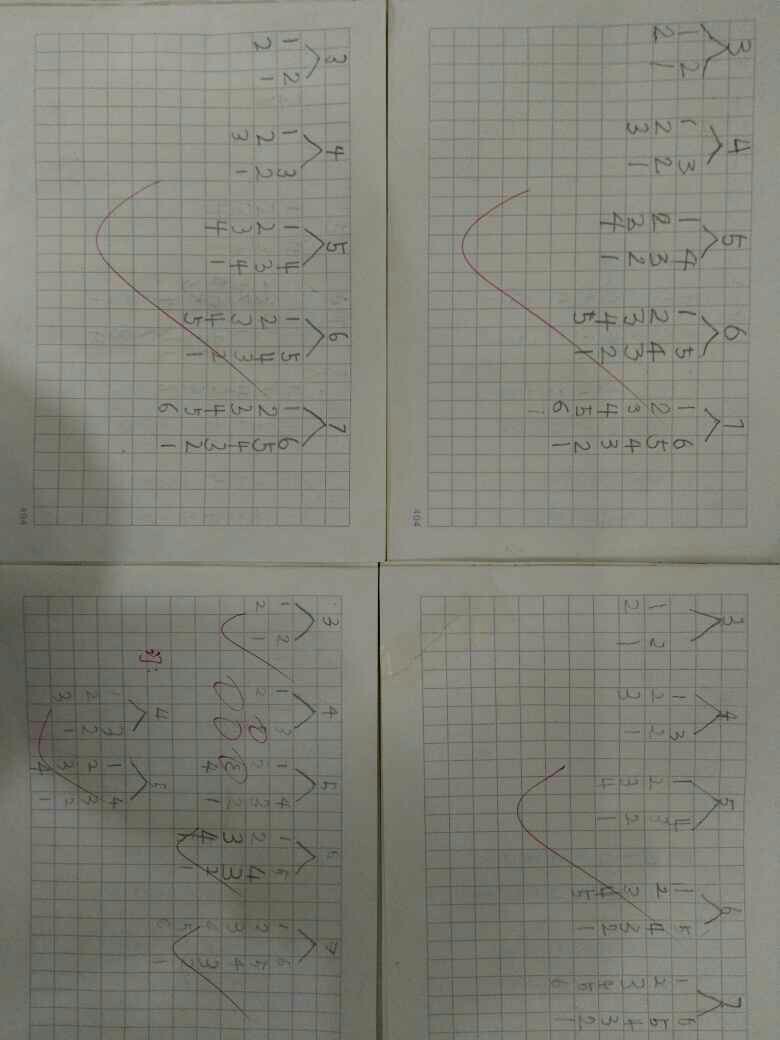 3 4 5 6 7
1 2 1 3 1 4 1 5 1 6
2 1 2 2 2 3 2 4 2 5
3 1 3 2 3 3 3 4
4 1 4 2 4 3
5 1 5 2
6 1
404
3 4 5 6 7
1 2 1 3 1 4 1 5 1 6
2 1 2 2 2 3 2 4 2 5
3 1 3 2 3 3 3 4
4 1 4 2 4 3
5 1 5 2
6 1
3 4 5 6 7
1 2 1 3 1 4 1 5 1 6
2 1 2 2 2 3 2 4 2 5
3 1 3 4 3 3 3 4
4 1 4 2 4 3
5 1 5 2
6 1
404
3 4 5 6 7
1 2 1 3 1 4 1 5 1 6
2 1 2 2 3 2 4 2 5
2 3 3 3 4
4 1 4 2 4 3
1 5 2
6 1
订:
4 5
1 3 1 4
2 2 2 3
3 1 3 2
4 1